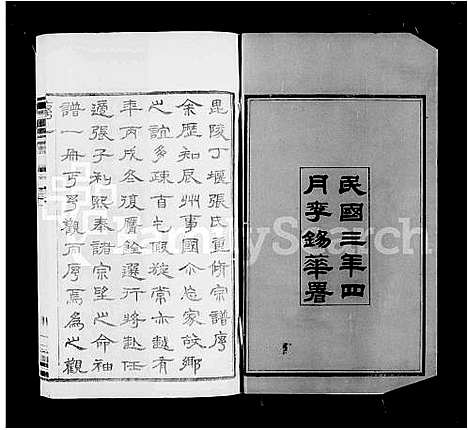 民國三年四
月李錫華署
毘陵丁堰張氏重修宗譜序
余歷知辰州事國尒忘家故鄉
之誼多疎首乞假旋常亦越有
年丙戌冬復膺銓選行將赴任
適張子利熙奉諸宗望之命袖
譜一冊丐予觀而序焉為之觀
FamilySearch